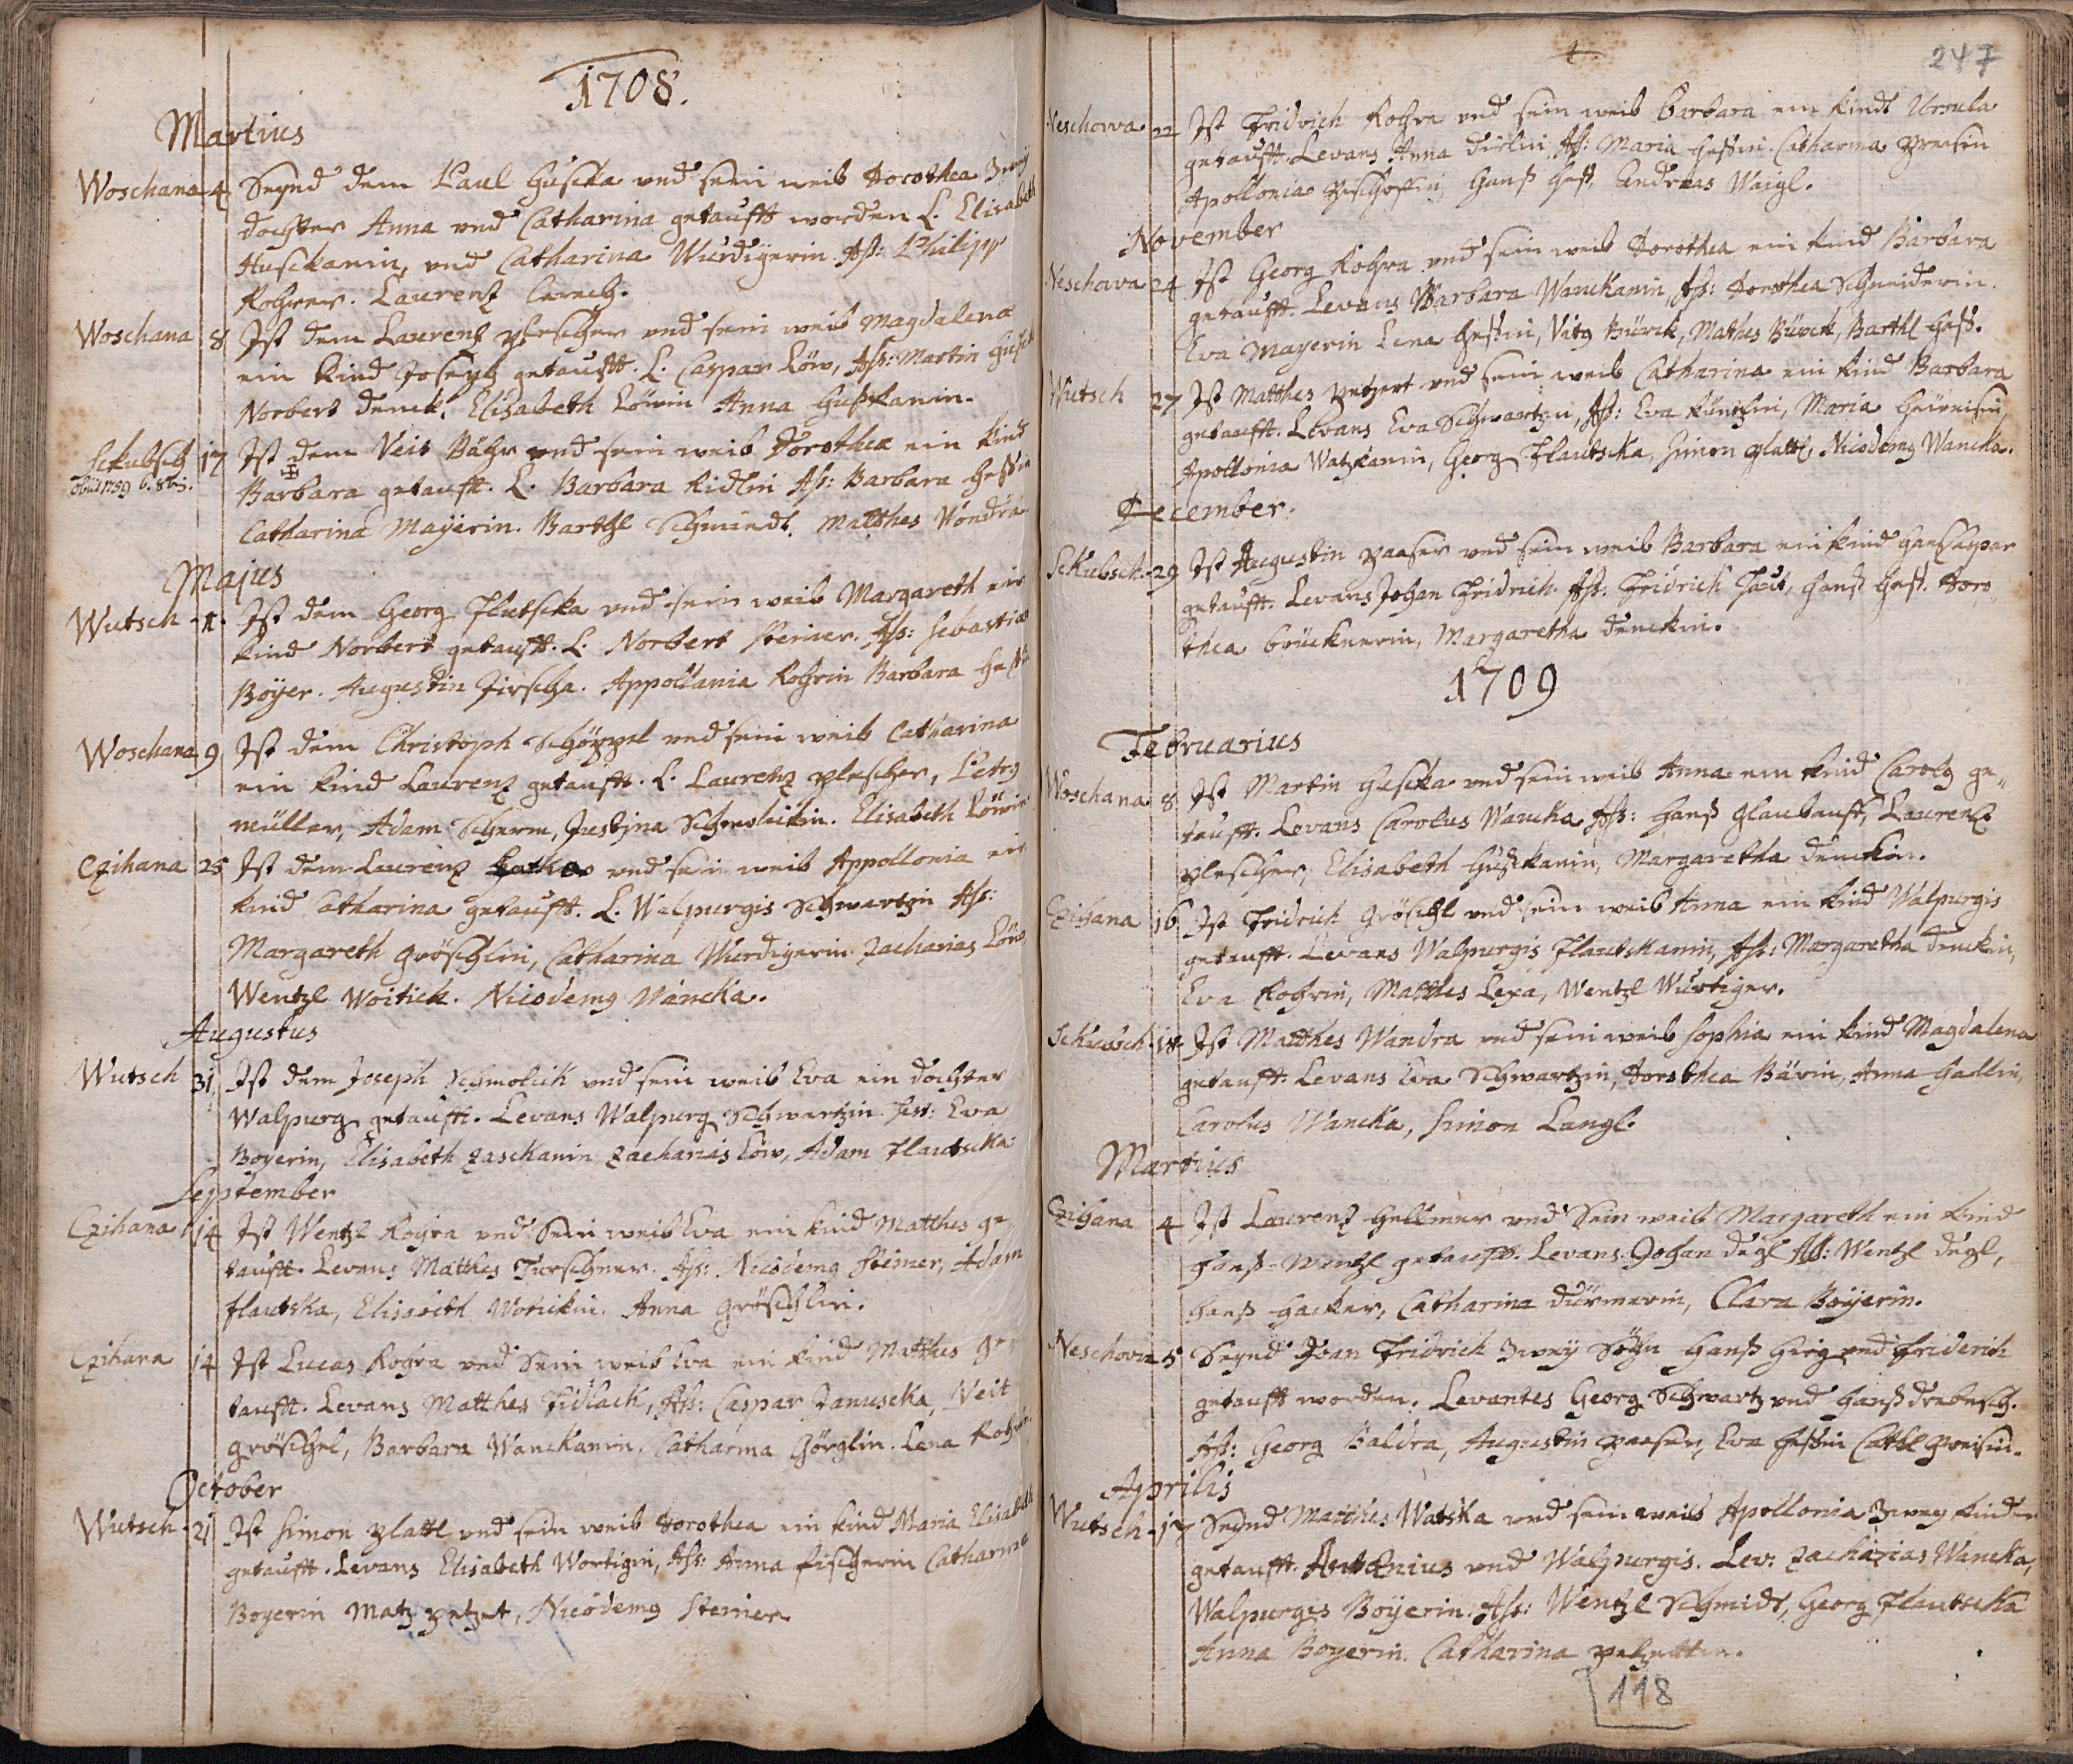 1708.
Martius
Woschana 4 Seynd dem Paul Huscka und sein weib Dorothea Zwey
dochter Anna und Catharina getaufft worden L. Elisabeth
Husckanin, und Catharina Wurdigerin. Aß: Philipp
Rohrer. Laurenz
Woschana 8 Ist dem Laurenz plescher und sein weib Magdalena
ein kind Joseph getaufft. L. Caspar Löw, Aß: Martin
Norbert denck. Elisabeth Löwin Anna Hußkanin.
Sckubsch 17 Ist dem Veit Bähr und sein weib Dorothea ein kind
obiit 1759 6. 8bris.
Barbara getaufft. L. Barbara Ridlin Aß: Barbara Heßin
Catharina Mayerin. Barthl Schmiedt. Matthes Wondra
Majus
Wutsch 1. Ist dem Georg Flutscka und sein weib Margareth ein
kind Norbert getaufft. L. Norbert Steiner. Aß: Sebastian
Böyer. Augustin Jirscha. Appollania Rohrin Barbara
Woschana 9 Ist dem Christoph Schöppel und sein weib Catharina
ein kind Laurenz getaufft. L. Laurenz plescher, Petrg
müller, Adam Scherm, Justina Schmolickin. Elisabeth Löwin
Czihana 25 Ist dem Laurenz und sein weib Appollonia ein
kind Catharina getaufft. L. Walpurgis Schwartzin Aß:
Margareth gröschlin, Catharina Wurdigerin Zacharias Löw,
Wentzl Woitick. Nicodemg Wancka.
Augustus
Wutsch 31, Ist dem Joseph Schmolick und sein weib Eva ein dochter
Walpurg getaufft. Levans Walpurg Schwartzin Ass: Eva
Boyerin, Elisabeth Zasckanin Zacharias Löw, Adam Flautscka
September
Czihana 14 Ist Wentzl Rohra und Sein weib Eva ein kind Matthes ge-
taufft. Levans Matthes Turschner. Aß: Nicodemg Steiner, Adam
flautska, Elisabeth Wotickin. Anna gröschlin.
Czihana 14 Ist Lucas Rohra und Sein weib Eva ein kind Matthes ge-
taufft. Levans Matthes Fidlack, Aß: Caspar Januscka, Veit
gröschel, Barbara Wanckanin, Catharina Görglin. Lena
October
Wutsch 21 Ist Simon plattl und sein weib Dorothea ein kind Maria Elisabeth
getaufft. Levans Elisabeth Wortigin, Aß: Anna fischerin Catharina
Boyerin Matz petzet, Nicodemg Steiner
247
Neschowa 22 Ist Fridrich Rohra und sein weib Barbara ein kindt Ursula
getaufft. Levans Anna Dirlin Aß: Maria Heßin. Catharina preisin
Apollonia Hanß Heß, Andreas Waigl.
November
Neschowa 24 Ist Georg Rohra und sein weib Dorothea ein kind Barbara
getaufft. Levans Barbara Wanckanin, Aß: Dorothea Schneiderin.
Eva Mayerin Lena Heßin, Vitg Bürck, Mathes Bürck, Barthl Heß.
Wutsch 27 Ist Matthes petzert und sein weib Catharina ein kind Barbara
getaufft. Levans Eva Schwartzin, Aß: Eva Küntzlin, Maria
Apollonia Watzkanin, Georg Flautscka, Simon plattl, Nicodemg Wancka.
December.
Sckubsch. 29 Ist Augustin paeser und sein weib Barbara ein kind
getaufft. Levans Johan Fridrich. Aß: Fridrich Hanß Heß. Doro
thea brücknerin, Margaretha denckin.
1709
Februarius
Woschana 8 Ist Martin Huscka und sein weib Anna ein kind Carolg ge-
taufft. Levans Carolus Wancka, Aß: Hanß glaubauff, Laurenz
plescher, Elisabeth Hußkanin, Margaretha denckin.
Czihana 16 Ist Fridrich gröschl und sein weib Anna ein kind Walpurgis
getaufft. Levans Walpurgis Flautskanin, Aß: Margaretha denckin,
Eva Rohrin, Matthes Lexa, Wentzl Würtiger.
Sckubsch 18 Ist Matthes Wandra und sein weib Sophia ein kind Magdalena
getaufft. Levans Eva Schwartzin, Dorothea Bärin, Anna Hallin,
Carolus Wancka, Simon Langl.
Martius
Czihana 4 Ist Laurenz Hellmer und Sein weib Margareth ein kind
Hanß-Wentzl getaufft. Levans. Johan degl Aß: Wentzl degl,
Hanß Hacker, Catharina dürmerin, Clara Boyerin.
Neschowa 5 Seynd Joan Fridrich Zwey Söhn Hanß Girg und Friderich
getaufft worden. Levantes Georg Schwartz und Hanß drebesch.
Aß: Georg Baldra, Augustin paeser, Eva Heßin Cathl preisin.
Aprilis
Wutsch 17 Seynd Matthes Watska und sein weib Apollonia Zwey kinder
getaufft. Antonius und Walpurgis. Lev: Zacharias Wancka,
Walpurgis Boyerin. Aß: Wentzl Schmidt, Georg Flautscka
Anna Boyerin. Catharina petzettin.
118